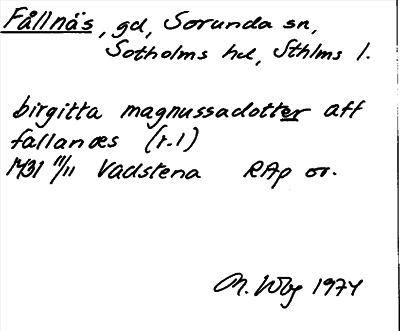 Fållnäs, gd, Sorunda sn,
Sotholms hd, Sthlms l.
birgitta magnussadotter aff
fallanæs (r.1)
1431 11/11 Vadstena RAp or.
M. Wbg 1974